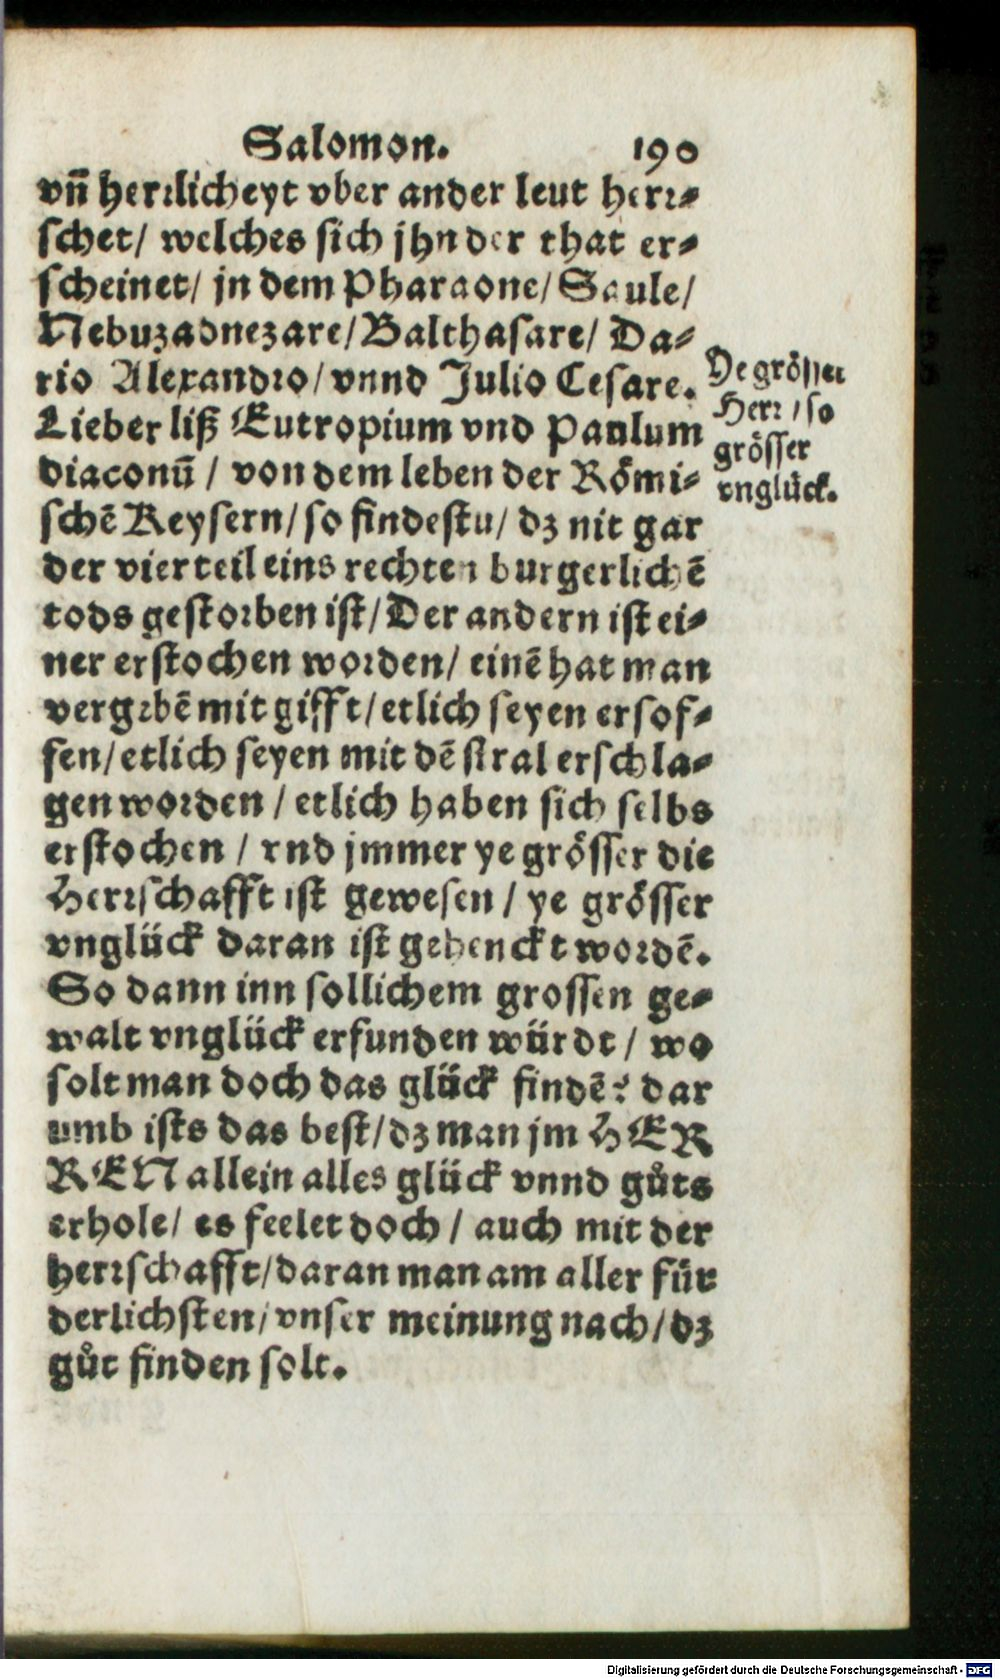 Salomon. 190
vn̄ herrlicheyt vber ander leut herr⸗
schet/ welches sich jhn der that er⸗
scheinet/ in dem Pharaone/ Saule/
Nebuzadnezare/ Balthasare/ Da⸗
rio Alexandro/ vnnd Julio Cesare.
Lieber liß Eutropium vnd Paulum
diaconū / von dem leben der Römi⸗
schē Keysern/ so findestu/ dz nit gar
der vierteil eins rechten burgerlichē
tods gestorben ist/ Der andern ist ei⸗
ner erstochen worden/ einē hat man
vergebē mit gifft/ etlich seyen ersof⸗
fen/ etlich seyen mit dē stral erschla⸗
gen worden / etlich haben sich selbs
erstochen / vnd jmmer ye grösser die
Herrschafft ist gewesen / ye grösser
vnglück daran ist gehenckt wordē.
So dann inn sollichem grossen ge⸗
walt vnglück erfunden würdt / wo
solt man doch das glück findē? dar
umb ists das best/ dz man jm HER
REN allein alles glück vnnd gůts
erhole/ es feelet doch / auch mit der
herrschafft/ daran man am aller für
derlichsten/ vnser meinung nach/ dz
gůt finden solt.
Ye grösser
Herr / so
grösser
vnglück.
Digitalisierung gefördert durch die Deutsche Forschungsgemeinschaft - DFG